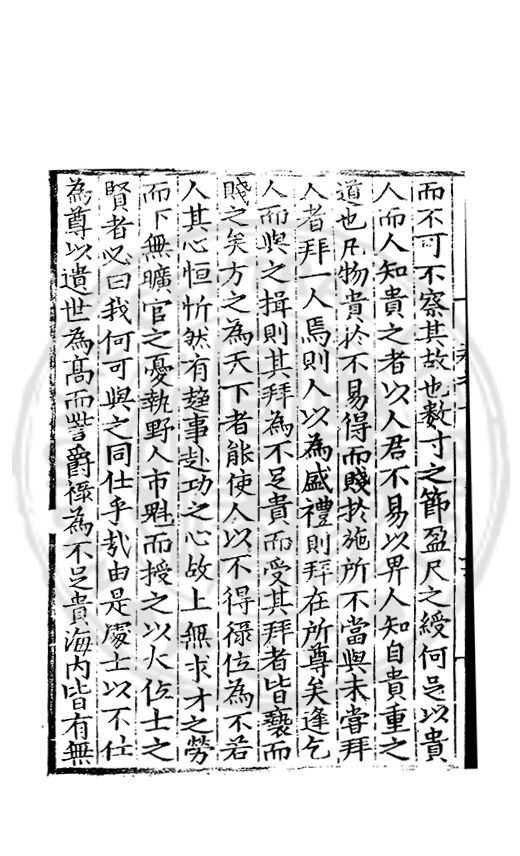 而不可不察其故也數寸之節盈尺之綬何足以貴
人而人知貴之者以人君不易以畀人知自貴重之
道也凡物貴於不易得而賤於施所不當與未嘗拜
人者拜一人焉則人以為盛禮則拜在所尊矣逢乞
人而與之揖則其拜為不足貴而受其拜者皆褻而
賤之矣方之為天下者能使人以不得祿位為不若
人其心恒忻然有趨事赴功之心故上無求才之勞
而下無曠官之憂執野人市魁而授之以大位士之
賢者必曰我何可與之同仕乎哉由是處士以不仕
為尊以遺世為高而訾爵祿為不足貴海內皆有無